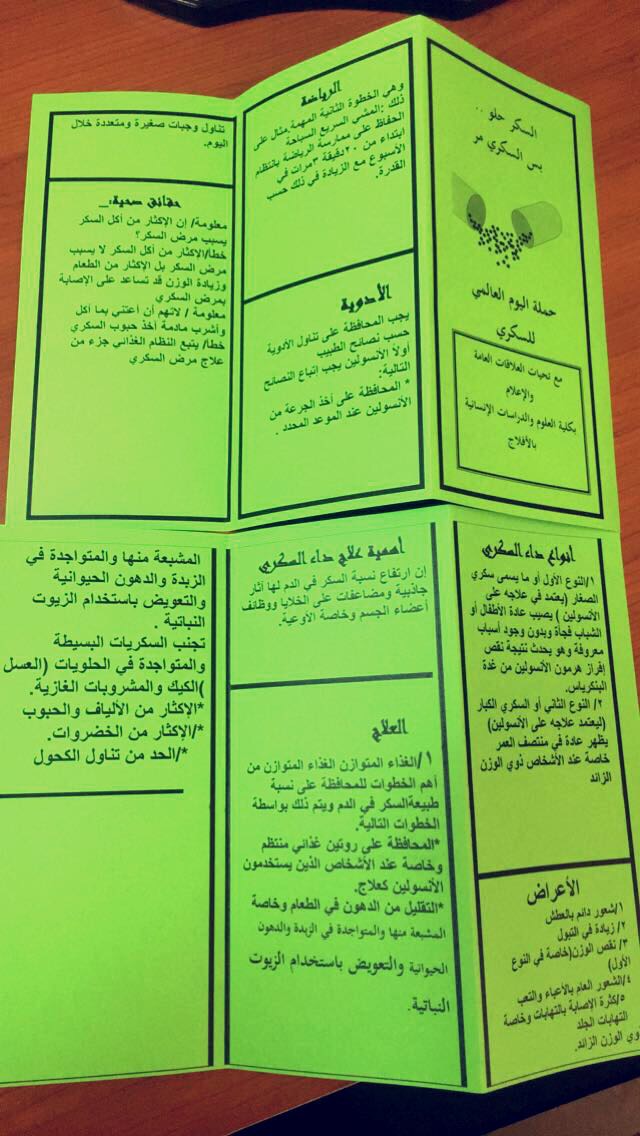 السكر حلو ..
بس السكري مر
حملة اليوم العالمي
للسكري
مع تحيات العلاقات العامة
والإعلام
بكلية العلوم والدراسات الإنسانية
بالأفلاج
الرياضة
وهي الخطوة الثانية المهمة.مثال على
ذلك :المشي السريع السباحة
الحفاظ على ممارسة الرياضة بانتظام
ابتداء من ٢٠دقيقة ٣مرات في
الأسبوع مع الزيادة في ذلك حسب
القدرة.
الأدوية
يجب المحافظة على تناول الأدوية
حسب نصائح الطبيب
أولاً الأنسولين يجب إتباع النصائح
التالية:
* المحافظة على أخذ الجرعة من
الأنسولين عند الموعد المحدد .
تناول وجبات صغيرة ومتعددة خلال
اليوم.
حقائق صحية:_
معلومة/ إن الإكثار من أكل السكر
يسبب مرض السكر؟
خطا/الإكثار من أكل السكر لا يسبب
مرض السكر بل الإكثار من الطعام
وزيادة الوزن قد تساعد على الإصابة
بمرض السكري
معلومة / لاتهم أن أعتني بما أكل
وأشرب مادمة أخذ حبوب السكري
خطا/ يتبع النظام الغذائي جزء من
علاج مرض السكري
أنواع داء السكري
١/النوع الأول أو ما يسمى سكري
الصغار (يعتمد في علاجه على
الأنسولين ) يصيب عادة الأطفال أو
الشباب فجأة وبدون وجود أسباب
معروفة وهو يحدث نتيجة نقص
إفراز هرمون الأنسولين من غدة
البنكرياس.
٢/ النوع الثاني أو السكري الكبار
(ليعتمد علاجه على الأنسولين)
يظهر عادة في منتصف العمر
خاصة عند الأشخاص ذوي الوزن
الزائد
الأعراض
١/شعور دائم بالعطش
٢/ زيادة في التبول
٣/ نقص الوزن(خاصة في النوع
الأول)
٤/الشعور العام بالأعباء والتعب
٥/كثرة الإصابة بالتهابات وخاصة
التهابات الجلد
وي الوزن الزائد.
أهمية علاج داء السكري
إن ارتفاع نسبة السكر في الدم لها آثار
جاذبية ومضاعفات على الخلايا ووظائف
أعضاء الجسم وخاصة الأوعية.
العلاج
١/الغذاء المتوازن الغذاء المتوازن من
أهم الخطوات للمحافظة على نسبة
طبيعةالسكر في الدم ويتم ذلك بواسطة
الخطوات التالية.
*المحافظة على روتين غذائي منتظم
وخاصة عند الأشخاص الذين يستخدمون
الأنسولين كعلاج.
*التقليل من الدهون في الطعام وخاصة
المشبعة منها والمتواجدة في الزبدة والدهون
الحيوانية والتعويض باستخدام الزيوت
النباتية.
المشبعة منها والمتواجدة في
الزبدة والدهون الحيوانية
والتعويض باستخدام الزيوت
النباتية .
تجنب السكريات البسيطة
والمتواجدة في الحلويات (العسل
)الكيك والمشروبات الغازية.
*الإكثار من الألياف والحبوب
*/الإكثار من الخضروات.
*/الحد من تناول الكحول